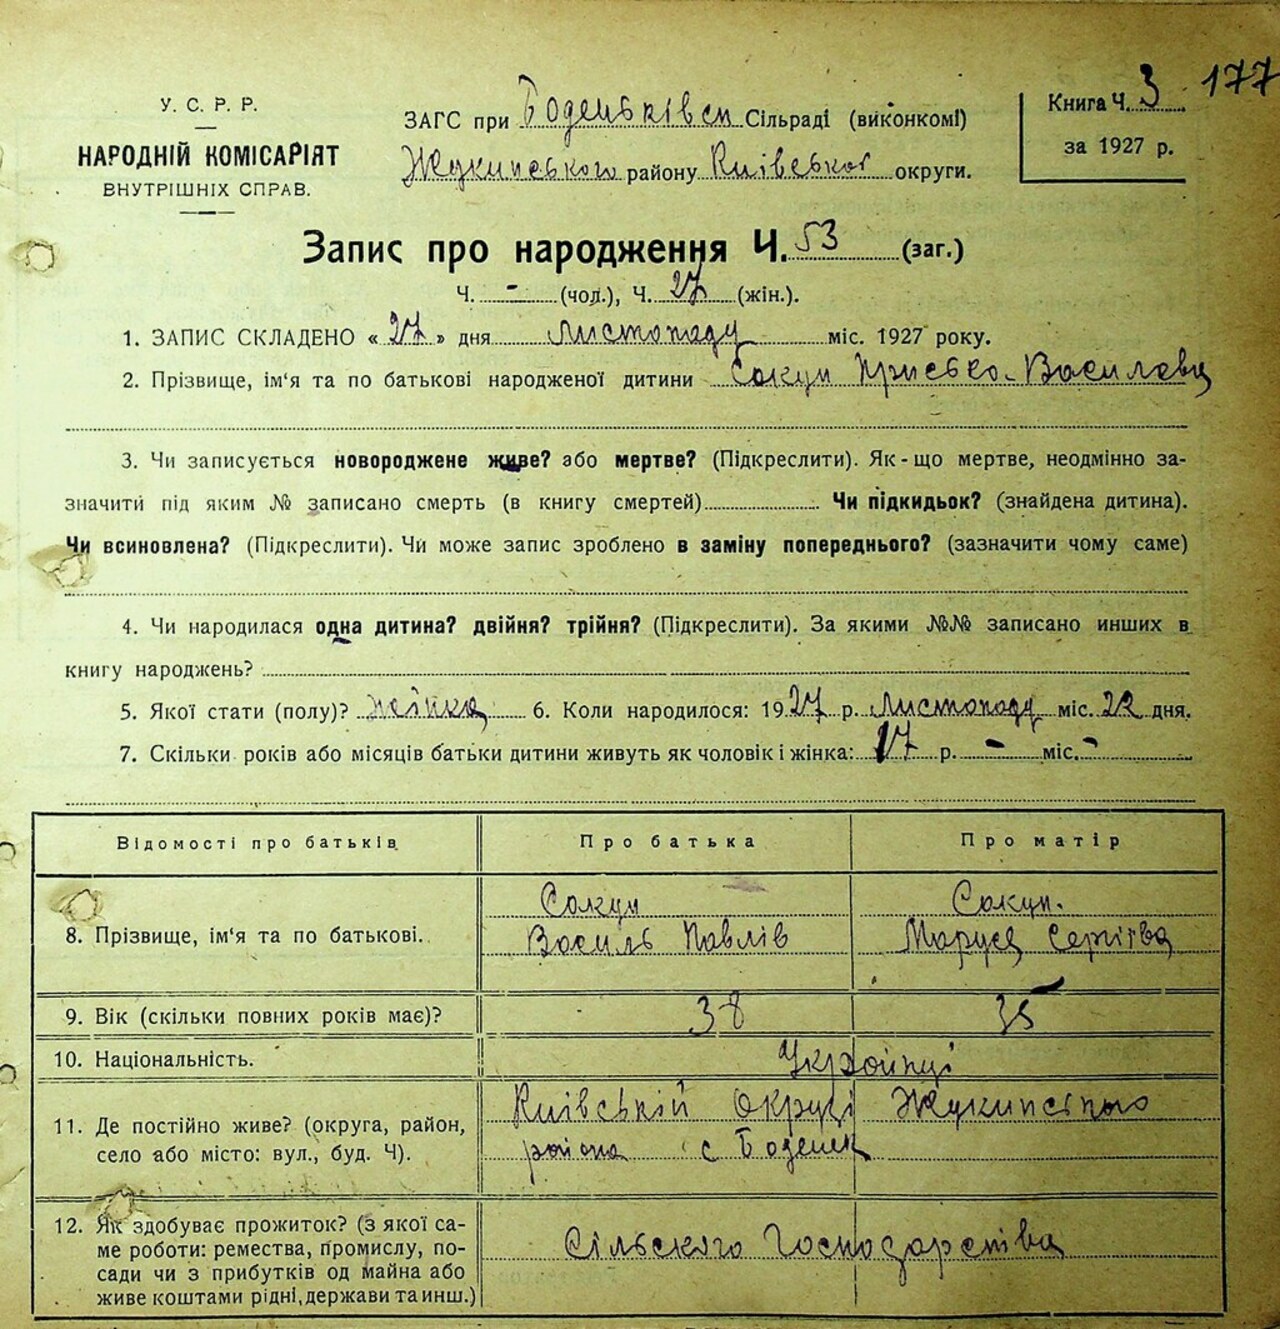 177
У. С. Р. Р.
НАРОДНІЙ КОМІСАРІЯТ
ВНУТРІШНІХ СПРАВ.
ЗАГС при Боденьківск Сільраді (виконкомі)
Жукинського району Київської округи.
Книга Ч. 3
за 1927 р.
Запис про народження Ч. 53 (заг.)
Ч. - (чол.), Ч. 27 (жін.).
1. ЗАПИС СКЛАДЕНО « 27 » дня листопаду міс. 1927 року.
2. Прізвище, ім'я та по батькові народженої дитини Сакун Присько Василева
3. Чи записується новороджене живе? або мертве? (Підкреслити). Як-що мертве, неодмінно за-
значити під яким № записано смерть (в книгу смертей) Чи підкидьок? (знайдена дитина).
Чи всиновлена? (Підкреслити). Чи може запис зроблено в заміну попереднього? (зазначити чому саме)
4. Чи народилася одна дитина? двійня? трійня? (Підкреслити). За якими №№ записано инших в
книгу народжень?
5. Якої стати (полу)? жінка 6. Коли народилося: 1927 р. листопаду міс. 22 дня.
7. Скільки років або місяців батьки дитини живуть як чоловік і жінка: 17 р. - міс. -
Відомості про батьків. Про батька Про матір
8. Прізвище, ім'я та по батькові.
Сакун Сакун.
Василь Павлів Маруся Сергіїва
9. Вік (скільки повних років має)? 38 35
10. Національність. Українці
11. Де постійно живе? (округа, район,
село або місто: вул., буд. Ч).
Київській округі Жукинського
района с Боденьк
12. Як здобуває прожиток? (з якої са-
ме роботи: ремества, промислу, по-
сади чи з прибутків од майна або
живе коштами рідні, держави та инш.)
Сільского Господарства